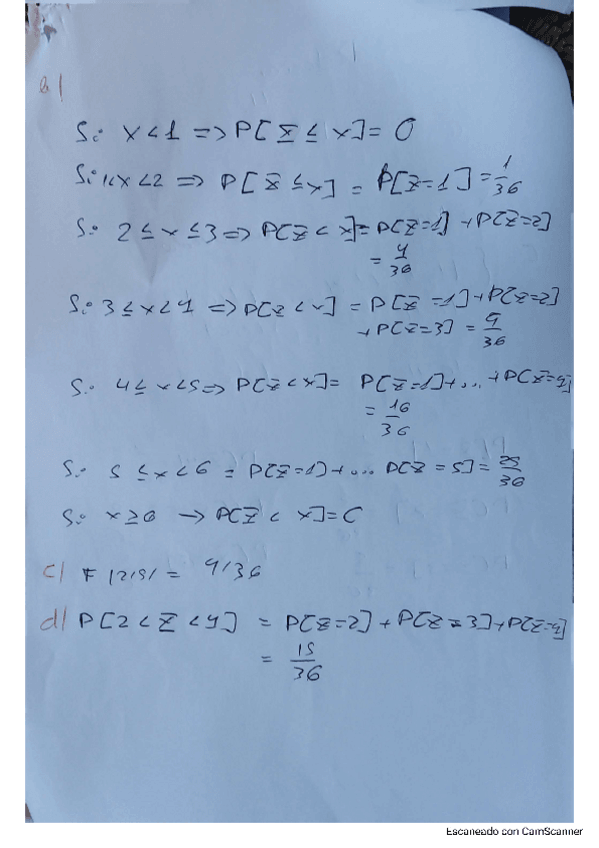 b|
Si x<1 => P[Z ≤ x]= 0
Si 1<x<2 => P[Z ≤x] = P[Z=1] = 1/36
Si 2 ≤ x ≤ 3 => P[Z < x]= P[Z=1] + P[Z=2]
= 4/36
Si 3 ≤ x < 4 => P[Z < x] = P[Z =1]+P[Z=2]
+ P[Z=3] = 9/36
Si 4 ≤ x<5 => P[Z<x]= P[Z=1]+... +P[Z=4]
= 16/36
Si 5 ≤x < 6 = P[Z=1]+... P[Z=5]= 25/36
Si x≥6 → P[Z < x]=
c| F = 9/36
d| P[2 < Z < 4] = P[Z=2] + P[Z=3]+P[Z=4]
= 15/36
Escaneado con CamScanner